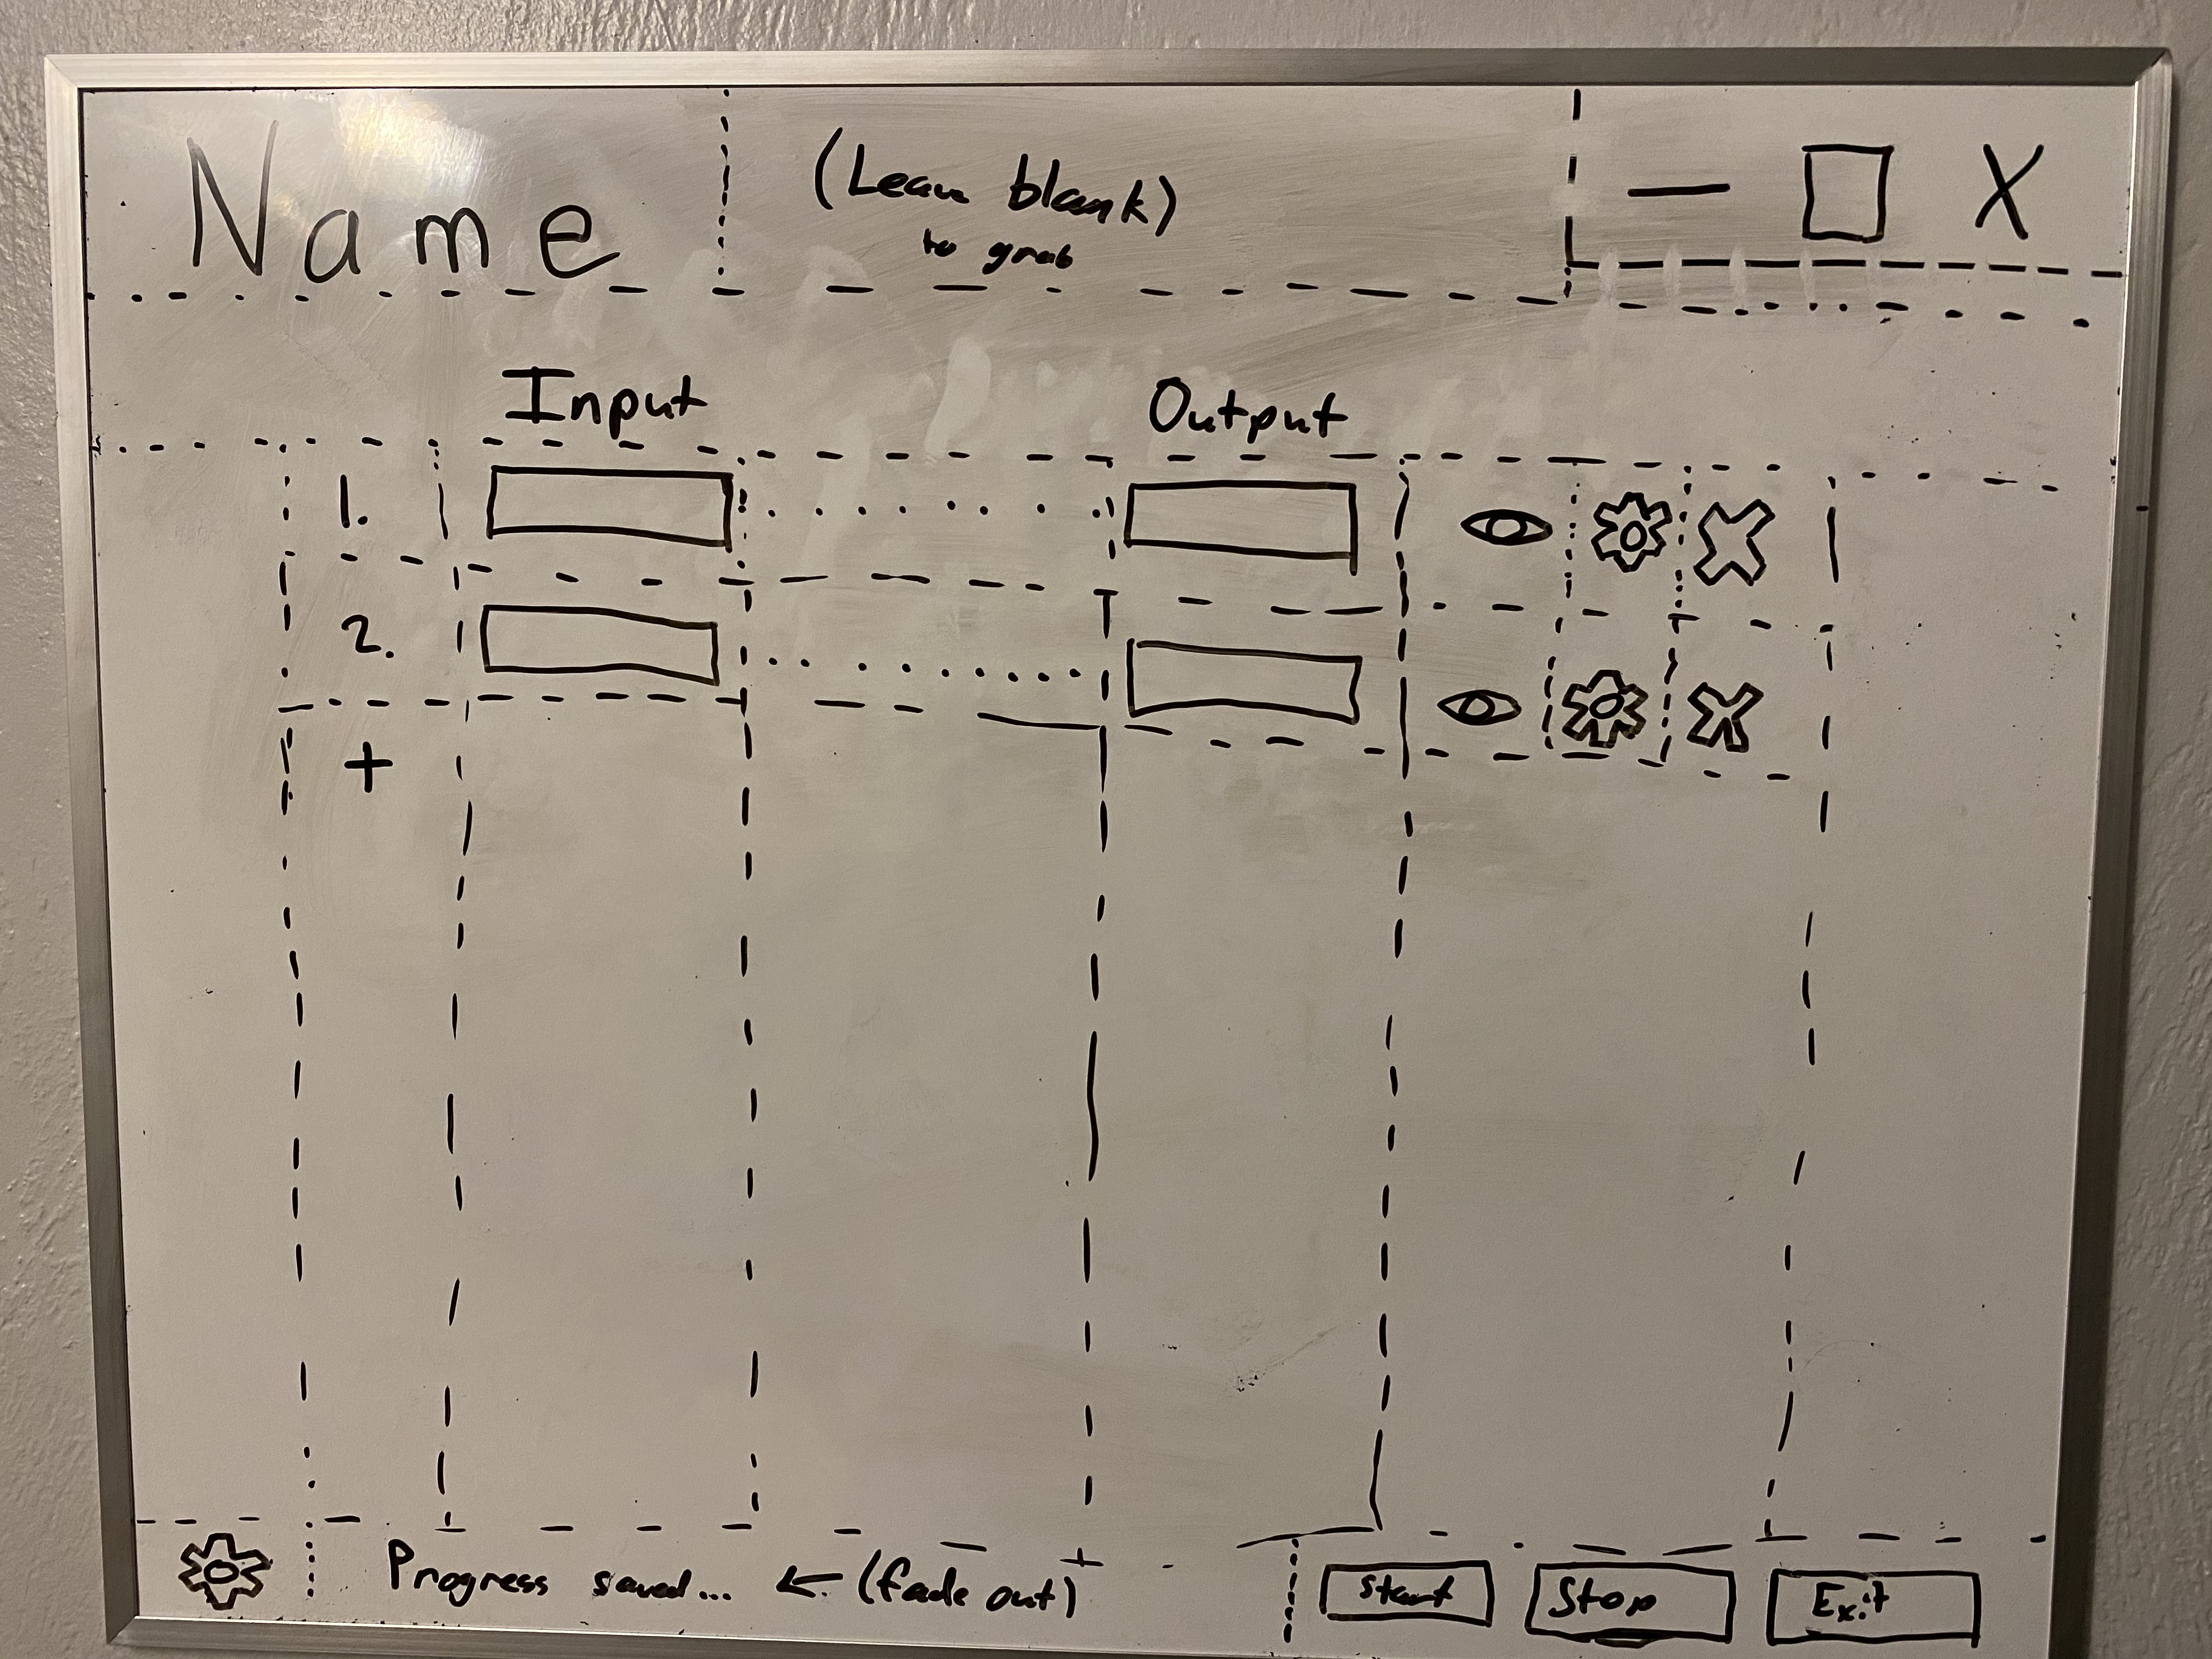 Name
(Leave blank)
to grab
— □ X
Input
Output
1.
2.
+
Progress saved... ← (fade out)
Start
Stop
Exit